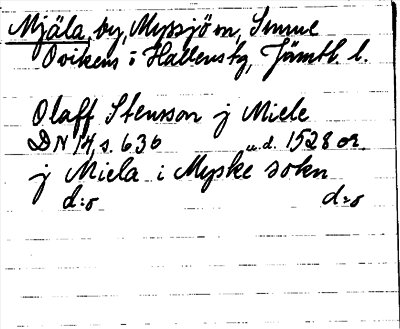 Mjäla, by, Myssjö sn, Sunne
Ovikens o Hallens tg, Jämtl. l.
Olaff Stensson j Miele
DN 14, s. 636 u.d. 1528 or.
j Miela i Myske sokn
d:o d:o